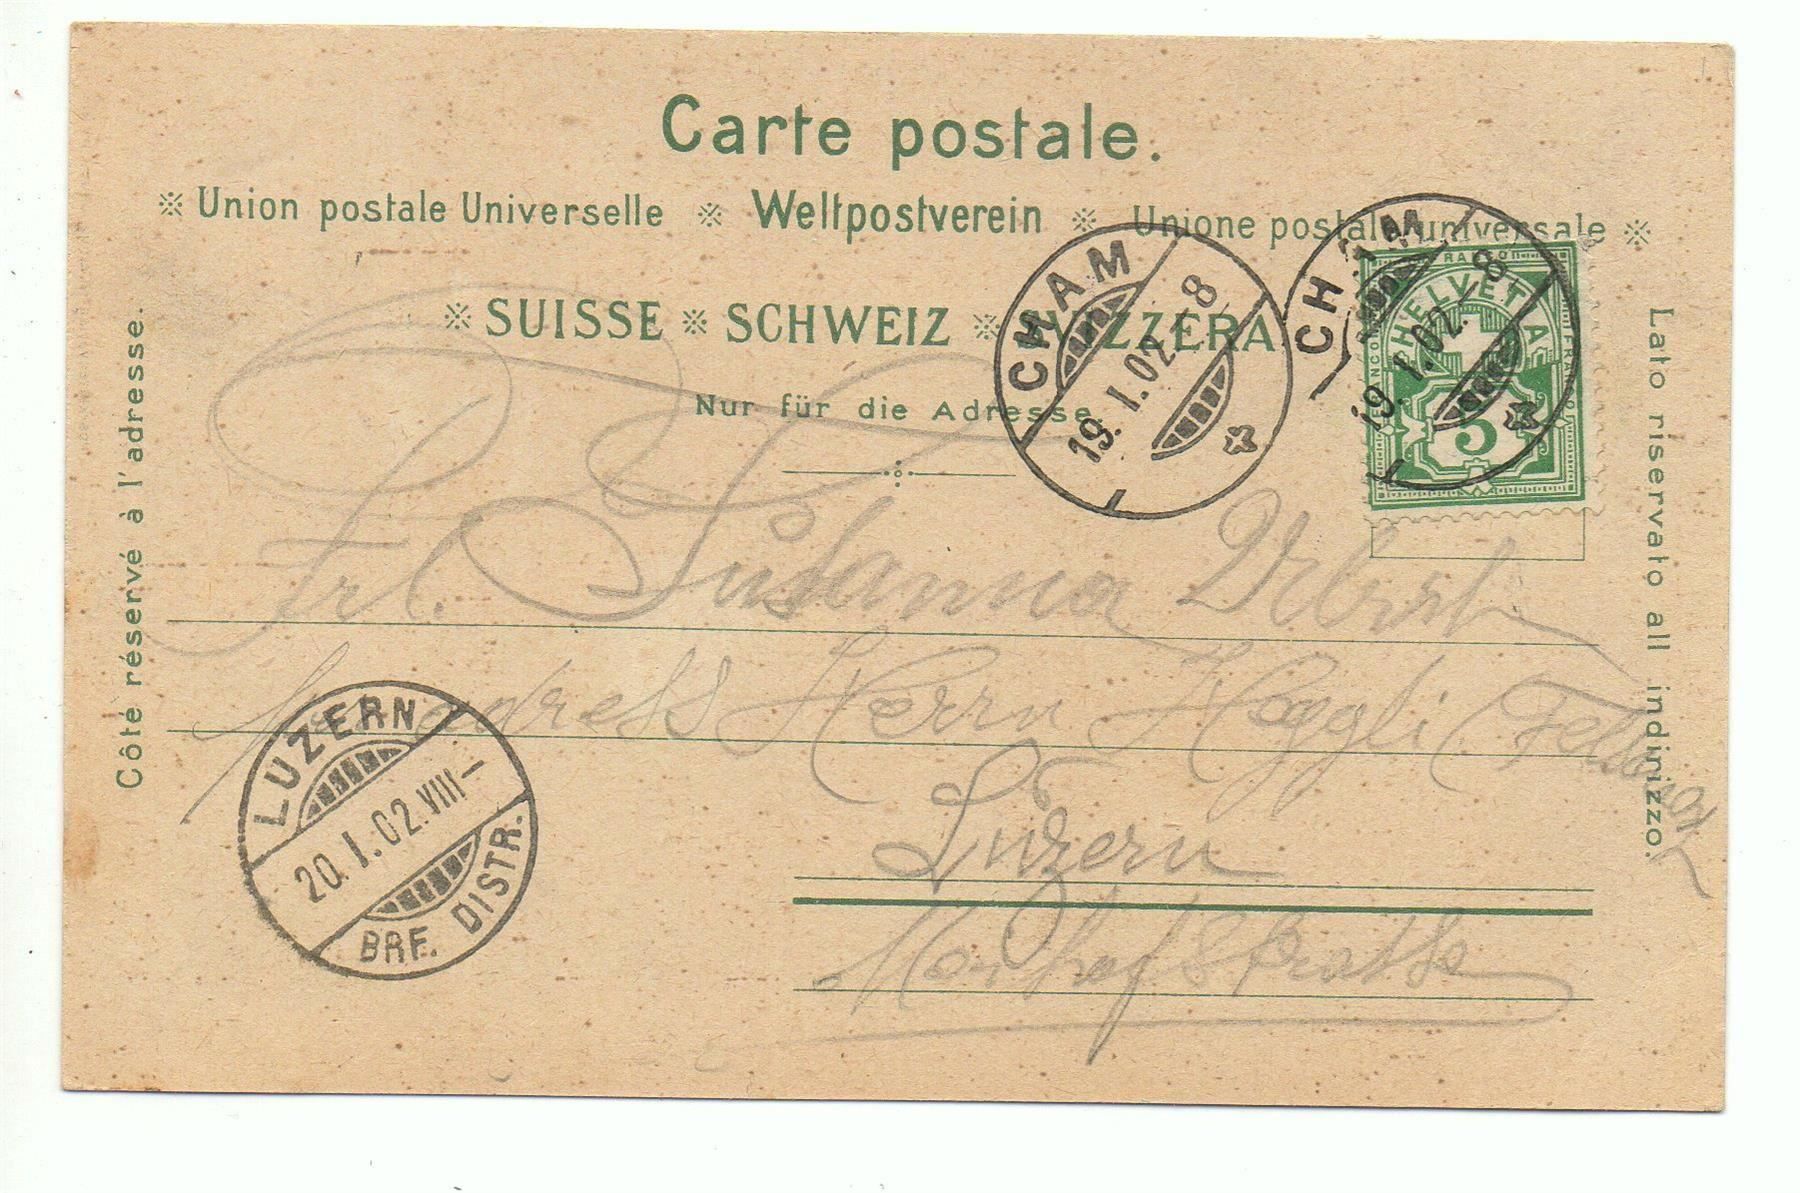 Carte postale.
※ Union postale Universelle ※ Weltpostverein ※ Unione postale universale ※
※ SUISSE ※ SCHWEIZ ※ SVIZZERA
Nur für die Adresse
Côté réservé à l'adresse.
Lato riservato all indirizzo.
CHAM
19. I. 02. – 8
CHAM
19. I. 02. – 8
FRANCO
HELVETIA
5
Frl. Susanna
Adress Herrn Heggli
Luzern
LUZERN
20. I. 02. VIII –
BRF. DISTR.